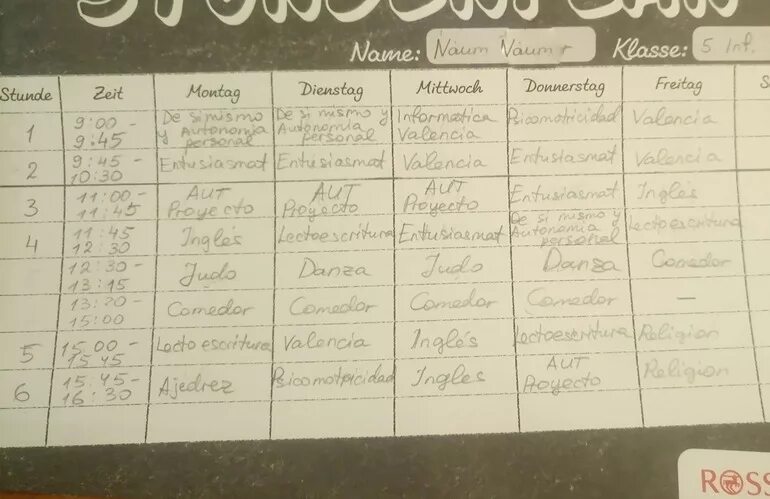 STUNDENPLAN
Name: Naum Naum Klasse: 5 Inf.
Stunde Zeit Montag Dienstag Mittwoch Donnerstag Freitag S
1 9:00 - 9:45 De si mismo y Autonomia personal De si mismo y Autonomia personal Informatica Valencia Psicomotricidad Valencia
2 9:45 - 10:30 Entusiasmat Entusiasmat Valencia Entusiasmat Valencia
3 11:00 - 11:45 AUT Proyecto AUT Proyecto AUT Proyecto Entusiasmat Inglés
4 11:45 12:30 Inglés Lectoescritura Entusiasmat De si mismo y Autonomia personal Lectoescritura
12:30 - 13:15 Judo Danza Judo Danza Comedor
13:20 - 15:00 Comedor Comedor Comedor Comedor —
5 15.00 - 15.45 Lectoescritura Valencia Inglés Lectoescritura Religion
6 15:45 - 16:30 Ajedrez Psicomotricidad Ingles AUT Proyecto Religion
ROSS